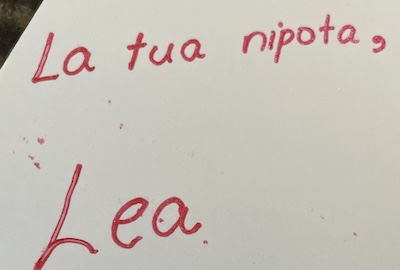 La tua nipota,
Lea